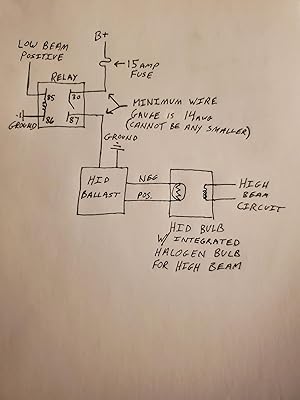 B+
LOW BEAM
POSITIVE
15 AMP
FUSE
RELAY
85
30
86
87
GROUND
MINIMUM WIRE
GAUGE IS 14 AWG
(CANNOT BE ANY SMALLER)
GROUND
HID
BALLAST
NEG
POS.
HIGH
BEAM
CIRCUIT
HID BULB
W/ INTEGRATED
HALOGEN BULB
FOR HIGH BEAM